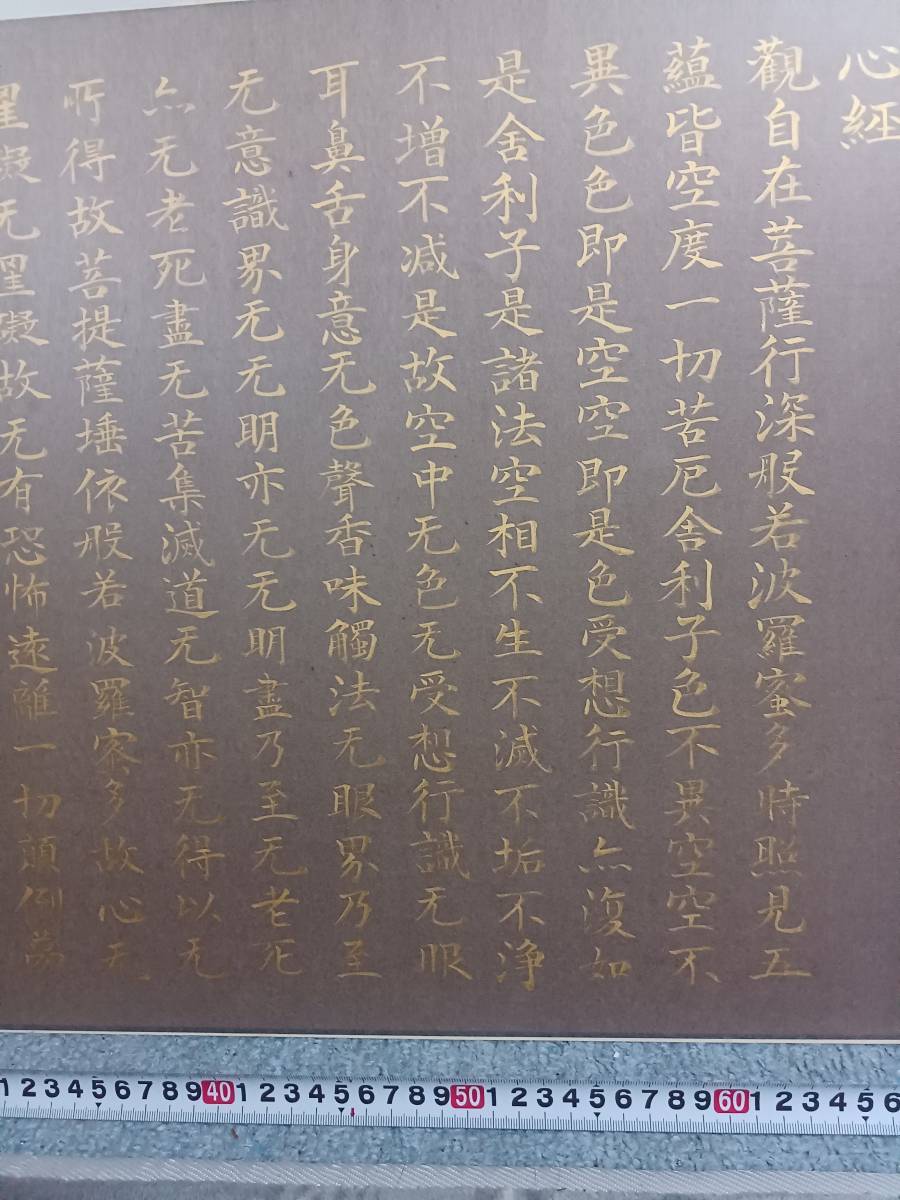 心經
觀自在菩薩行深般若波羅蜜多時照見五
蘊皆空度一切苦厄舍利子色不異空空不
異色色即是空空即是色受想行識亦復如
是舍利子是諸法空相不生不滅不垢不淨
不增不減是故空中无色无受想行識无眼
耳鼻舌身意无色聲香味觸法无眼界乃至
无意識界无无明亦无无明盡乃至无老死
亦无老死盡无苦集滅道无智亦无得以无
所得故菩提薩埵依般若波羅蜜多故心无
罣礙无罣礙故无有恐怖遠離一切顛倒夢
1 2 3 4 5 6 7 8 9 40 1 2 3 4 5 6 7 8 9 50 1 2 3 4 5 6 7 8 9 60 1 2 3 4 5 6